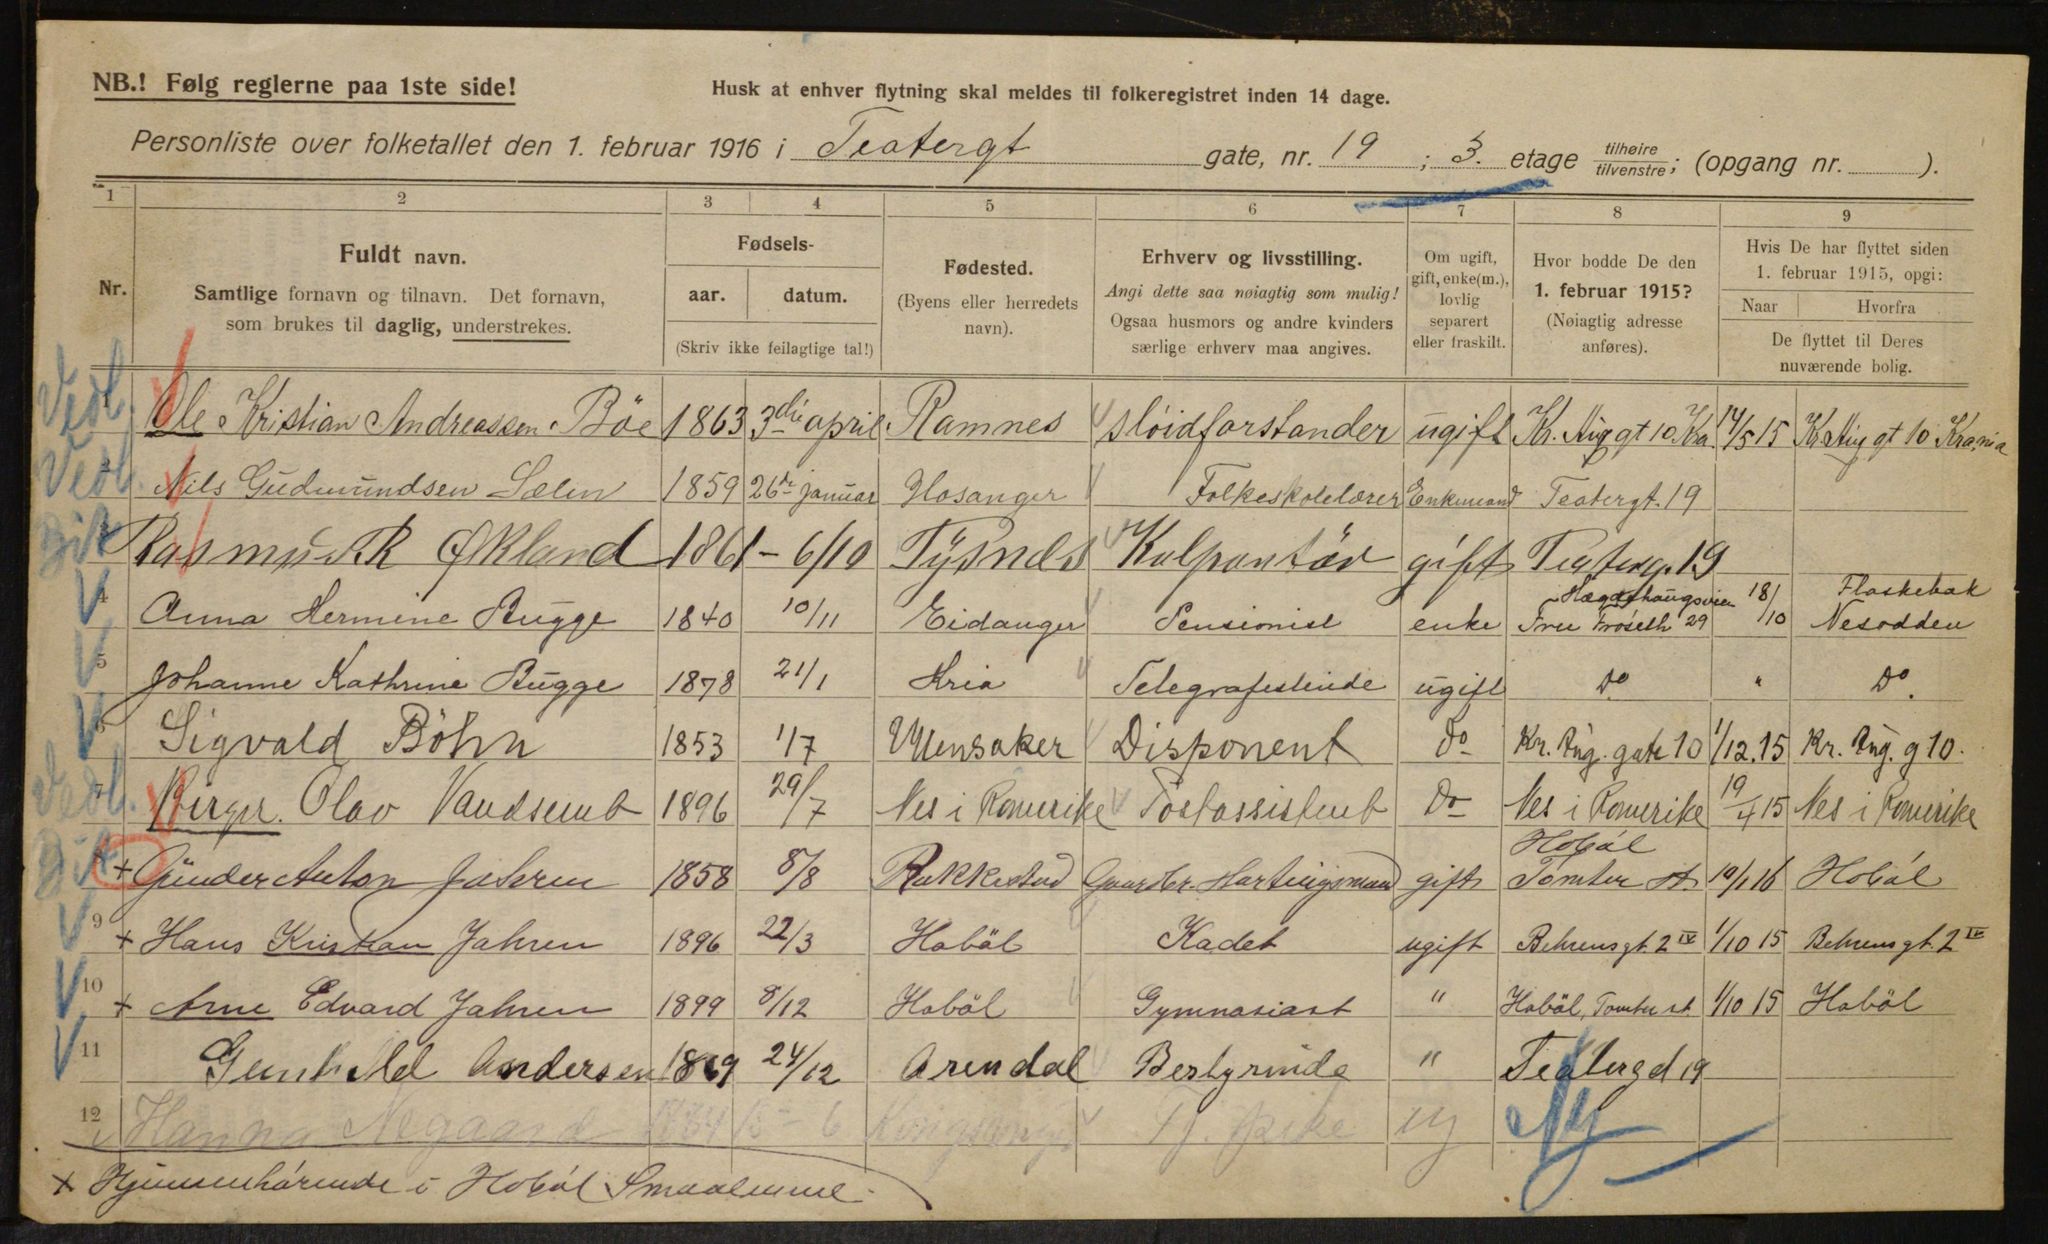 NB.! Følg reglerne paa 1ste side!
Husk at enhver flytning skal meldes til folkeregistret inden 14 dage.
Personliste over folketallet den 1. februar 1916 i Teatergt gate, nr. 19 ; 3. etage tilhøire tilvenstre; (opgang nr. ).
1 2 3 4 5 6 7 8 9
Nr.
Fuldt navn.
Samtlige fornavn og tilnavn. Det fornavn,
som brukes til daglig, understrekes.
Fødsels-
aar. datum.
(Skriv ikke feilagtige tal!)
Fødested.
(Byens eller herredets
navn).
Erhverv og livsstilling.
Angi dette saa nøiagtig som mulig!
Ogsaa husmors og andre kvinders
særlige erhverv maa angives.
Om ugift,
gift, enke(m.),
lovlig
separert
eller fraskilt.
Hvor bodde De den
1. februar 1915?
(Nøiagtig adresse
anføres).
Hvis De har flyttet siden
1. februar 1915, opgi:
Naar Hvorfra
De flyttet til Deres
nuværende bolig.
Vedl. 1 Ole Kristian Andreassen Böe 1863 3die april Ramnes slöidforstander ugift Kr. Aug gt 10 Kra. 14/5 15 Kr Aug gt 10 Krania
Vedl. 2 Nils Gudmundsen Sælen 1859 26de januar Hosanger Folkeskolelærer Enkemand Teatergt. 19
3 Rasmus R Økland 1861 - 6/10 Tysnes Kolportör gift Teaterg. 19
4 Anna Hermine Bugge 1840 10/11 Eidanger Pensionist enke Hægdehaugsveien Fru Fröseth 29 18/10 Flaskebæk Nesodden
5 Johanne Kathrine Bugge 1878 21/1 Kria Telegrafistinde ugift Do " Do.
6 Sigvald Böhn 1853 1/7 Ullensaker Disponent Do Kr. Aug. gate 10 1/12.15 Kr. Aug. g 10.
Vedl. 7 Birger Olav Vandsemb 1896 29/7 Nes i Romerike Postassistent Do Nes i Romerike 19/4 15 Nes i Romerike
8 + Gunder Anton Jahren 1858 8/8 Rakkestad Gaardbr. Hartingsmand gift Hobøl Tomter st 10/1 16 Hobøl
9 + Hans Kristian Jahren 1896 22/3 Hobøl Kadet ugift Behrensgt. 2 IV 1/10 15 Behrensgt. 2 IV
10 + Arne Edvard Jahren 1899 8/12 Hobøl Gymnasiast " Hobøl, Tomter st. 1/10 15 Hobøl
11 Gunhild Andersen 1869 24/12 Arendal Bestyrinde " Teatergd 19
12 Hanna Negaard 1884 15-6 Kongsvinger Tj. pike ug Ny
+ Hjemmehørende i Hobøl Smaalenene